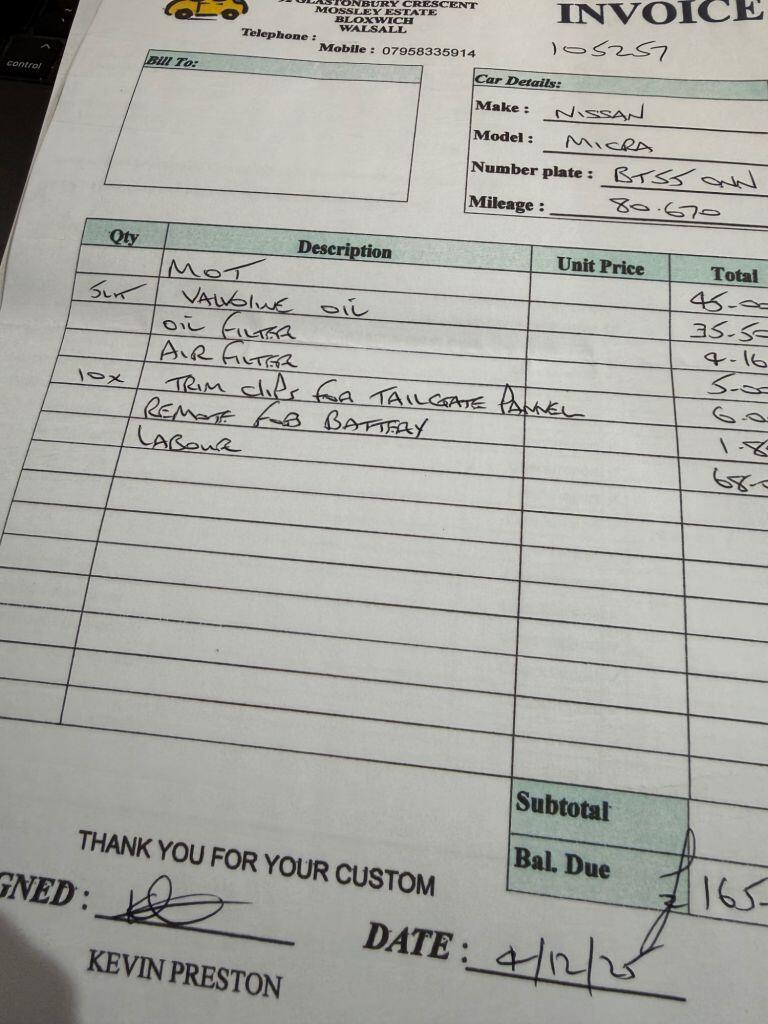 control
GLASTONBURY CRESCENT
MOSSLEY ESTATE
BLOXWICH
WALSALL
Telephone :
Mobile : 07958335914
INVOICE
105257
Bill To:
Car Details:
Make : NISSAN
Model : MICRA
Number plate : BT55 ONN
Mileage : 80.670
Qty Description Unit Price Total
MOT 45.00
5LT VALVOLINE OIL 35.50
OIL FILTER 4.16
AIR FILTER 5.00
10x TRIM CLIPS FOR TAILGATE PANNEL 6.0
REMOTE FOB BATTERY 1.8
LABOUR 68.
Subtotal
Bal. Due £ 165-
THANK YOU FOR YOUR CUSTOM
GNED :
KEVIN PRESTON
DATE : 4/12/25